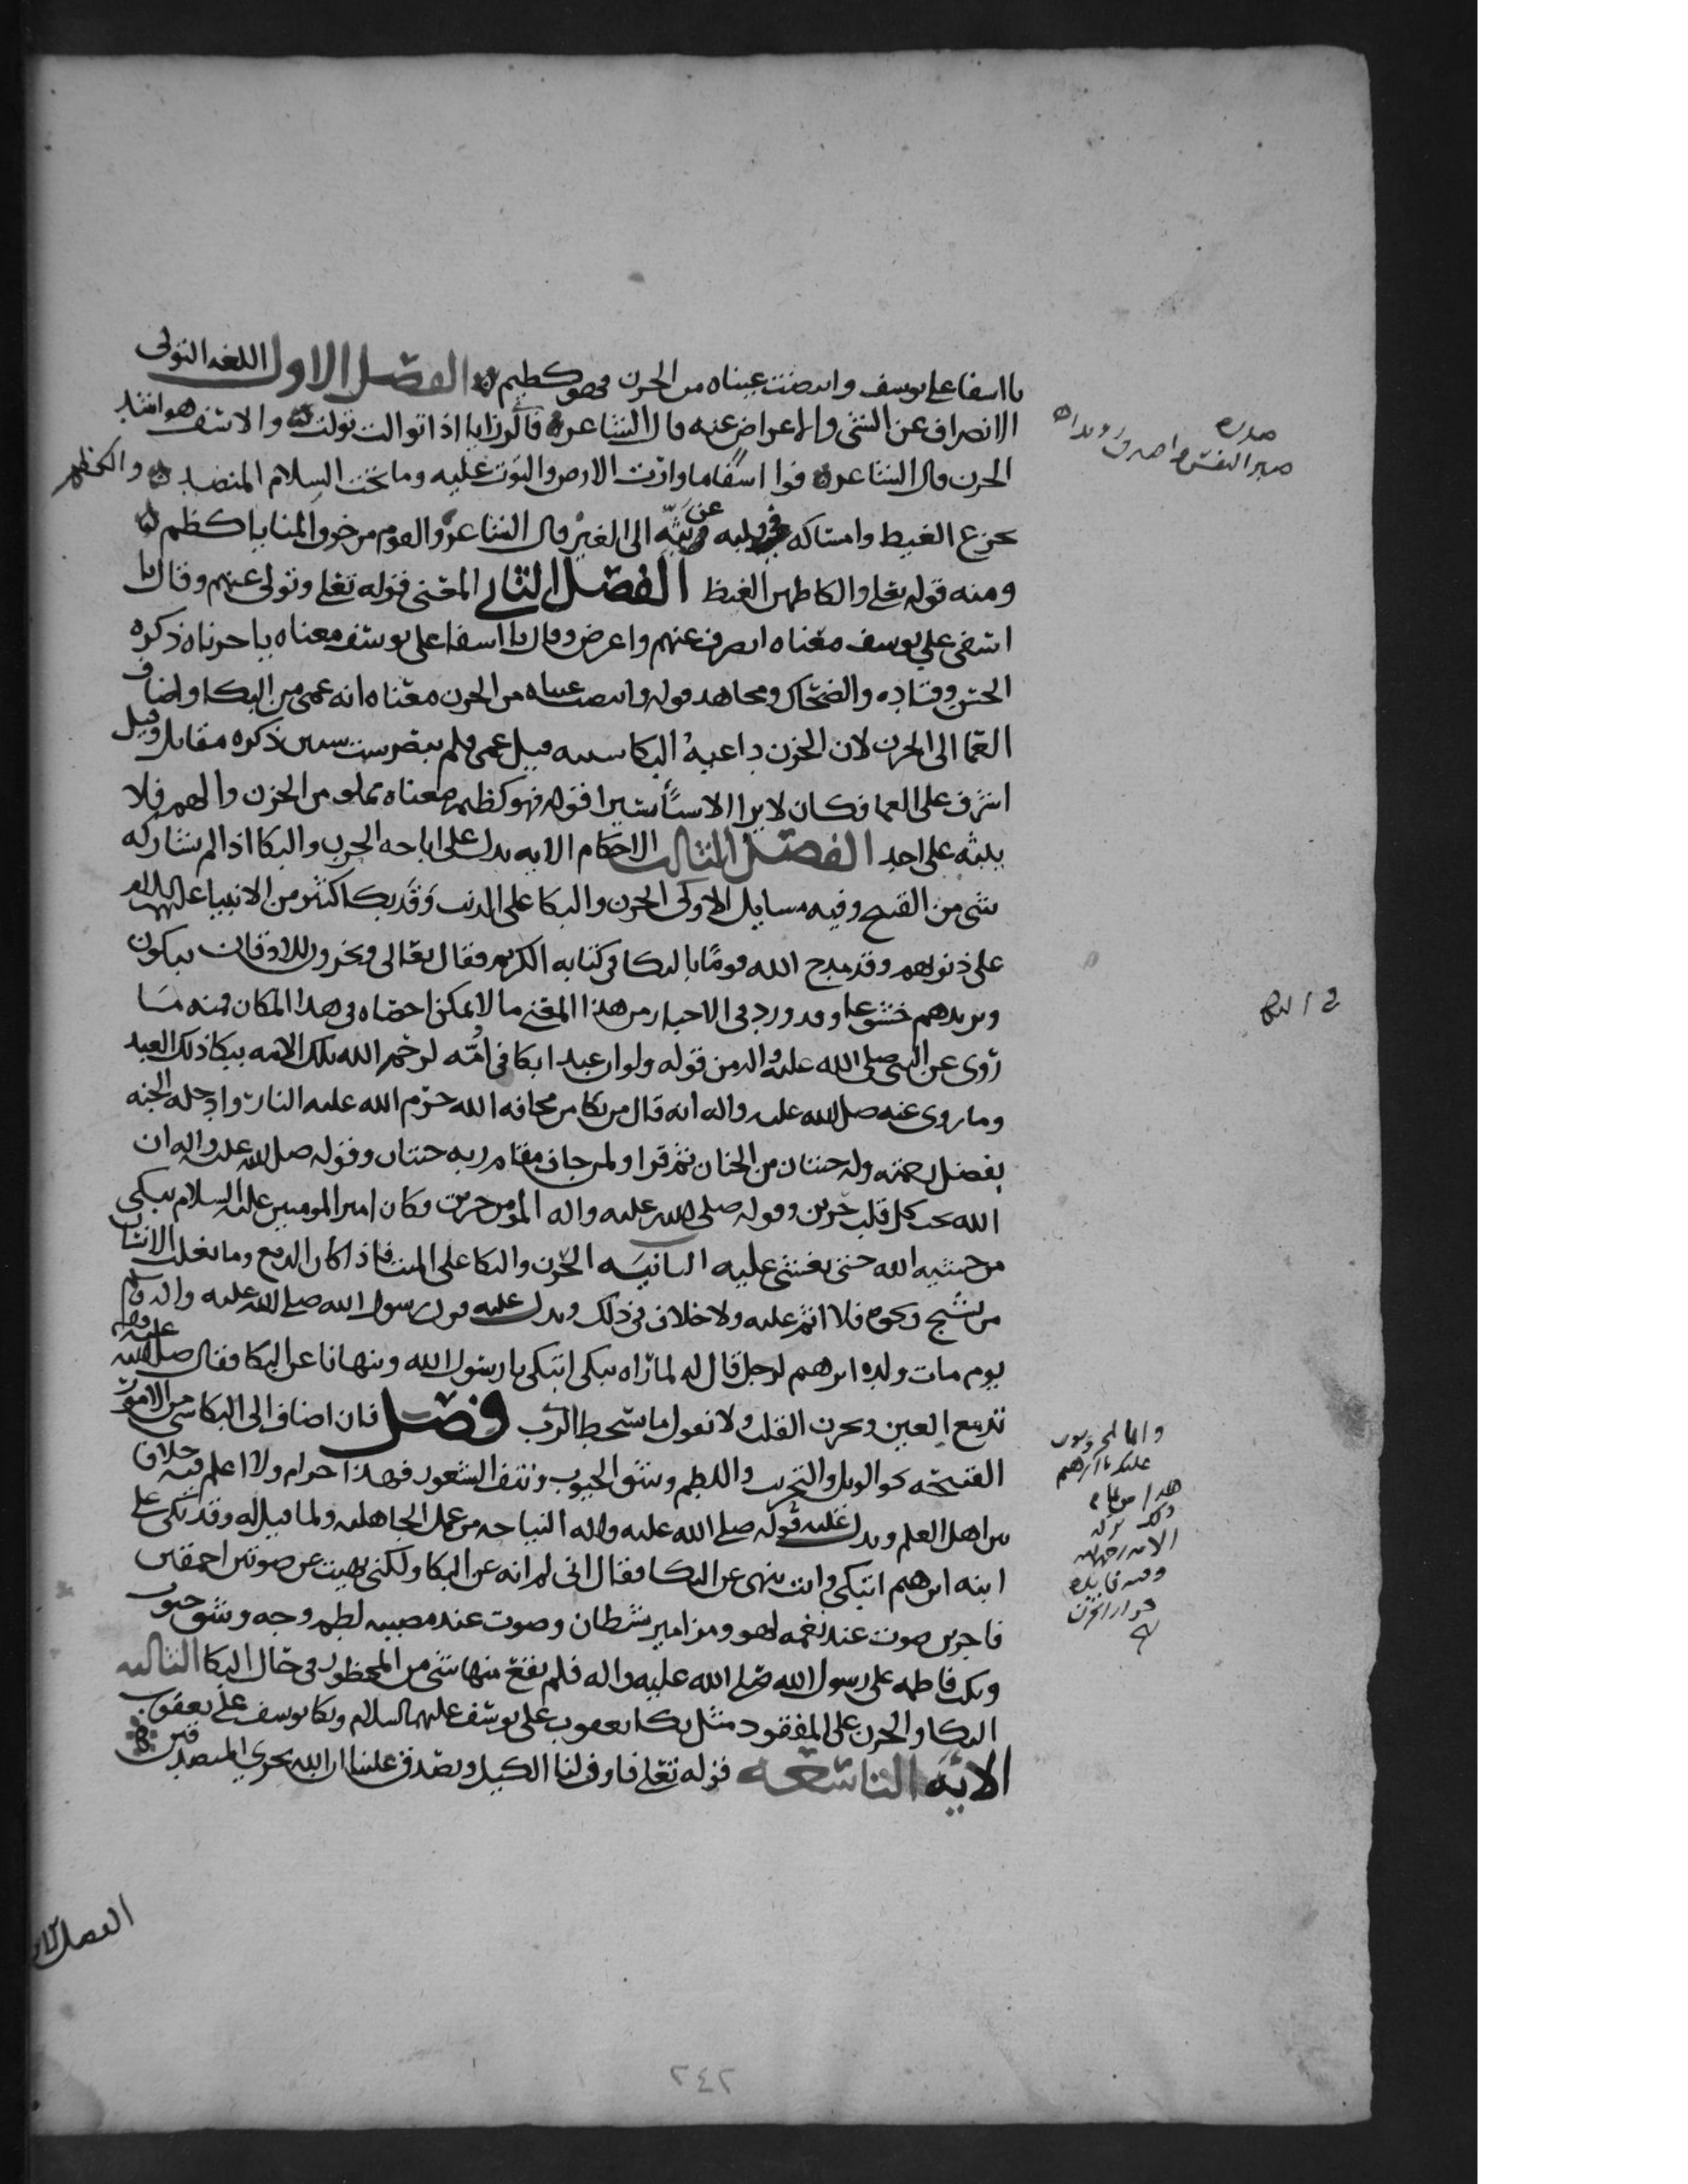 يا اسفا على يوسف وابيضت عيناه من الحزن فهو كظيم الفصل الاول اللغه التولى
الانصراف عن الشى والاعراض عنه قال الشاعر اذا توالت تولت والاسف هو اشد
الحزن قال الشاعر فوا اسفا ما وارت الارض واستوت عليه وما تحت السلام المنضد والكظم
تجرع الغيظ وامساكه في قلبه عن بثه الى الغير قال الشاعر والقوم من خوف المنايا كظم
ومنه قوله تعلى والكاظمين الغيظ الفصل الثانى المعنى قوله تعلى وتولى عنهم وقال يا
اسفى على يوسف معناه انصرف عنهم واعرض وقال يا اسفا على يوسف معناه يا حزناه ذكره
الحسن وقتاده والضحاك ومجاهد قوله وابيضت عيناه من الحزن معناه انه عمى من البكا واضاف
العما الى الحزن لان الحزن داعيه البكا قيل عمى فلم يبصر ست سنين ذكره مقاتل وقيل
اشرف على العما فكان لا يرا الا شيأ يسيرا قوله فهو كظيم معناه مملو من الحزن والهم فلا
يبثه على احد الفصل الثالث الاحكام الايه تدل على اباحه الحزن والبكا اذا لم يشاركه
شى من القبح وفيه مسايل الاولى الحزن والبكا على الذنب وقد بكا كثير من الانبيا عليهم السلام
على ذنوبهم وقد مدح الله قومًا بالبكا في كتابه الكريم فقال تعالى ويخرون للاذقان يبكون
ويزيدهم خشوعا وقد ورد في الاخبار من هذا المعنى ما لا يمكن احصاه في هذا المكان فمنه مَا
روى عن النبى صلى الله عليه واله من قوله ولو ان عبدا بكا في امّه لرحم الله تلك الامه ببكا ذلك العبد
وما روى عنه صلى الله عليه واله انه قال من بكا من مخافه الله حرم الله عليه النار وادخله الجنه
بفضل رحمته وله جنتان من الجنان ثم قرا ولمن خاف مقام ربه جنتان وقوله صلى الله عليه واله ان
الله يحب كل قلب حزين وقوله صلى الله عليه واله المؤمن حزين وكان امير المومنين عليه السلام يبكى
من خشيه الله حتى يغشى عليه الثانيه الحزن والبكا على الميت فاذا كان الدمع وما يغلب الانسان
من نشيج ونحوه فلا اثم عليه ولا خلاف في ذلك ويدل عليه قول رسول الله صلى الله عليه واله وسلم
يوم مات ولده ابرهيم لرجل قال له لما راه يبكى اتبكى يا رسول الله وتنهانا عن البكا فقال صلى الله عليه
تدمع العين ويحزن القلب ولا نقول ما يسخط الرب فصل فان اضاف الى البكا شى من الامور
القبيحه نحو الويل واللطم وشق الجيوب ونتف الشعور فهذا حرام ولا اعلم فيه خلاف
من اهل العلم ويدل عليه قوله صلى الله عليه واله النياحه من عمل الجاهليه ولما قيل له وقد بكى على
ابنه ابرهيم اتبكى وانت تنهى عن البكا فقال انى لم انه عن البكا ولكنى نهيت عن صوتين احمقين
فاجرين صوت عند نغمه لهو ومزامير شيطان وصوت عند مصيبه لطم وجه وشق جيوب
وبكت فاطمه على رسول الله صلى الله عليه واله فلم يقع منها شى من المحظور في حال البكا الثالثه
البكا والحزن على المفقود مثل بكا يعقوب على يوسف عليهما السلام وبكا يوسف على يعقوب
الايه التاسعه قوله تعلى فاوف لنا الكيل وتصدق علينا ان الله يجزى المتصدقين
وانا لمحزونون
عليك يا ابرهيم
الفصل الاول
٢٤٢